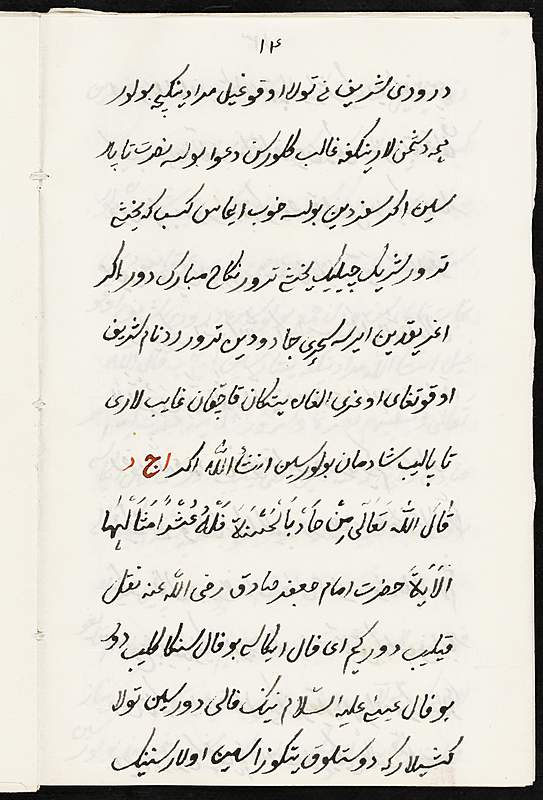 ۱۴
درودی شریف نی تولا اوقوغیل مرادینکچه بولور
همه دشمن لارینکغه غالب کلورسن دعوا بولسه نصرت تاپار
سین اکر سفردین بولسه خوب ایماس کسب که یخشی
تدور شریک چیلیک یخشی تدور نکاح مبارک دور اکر
اغریقدین ایرسه سحری جادودین تدور ردنام شریف
اوقوتغای اوغری الغان یتکان قاچقان غایب لاری
تاپالیب شادمان بولورسین انشاءالله اکر ا ج د
قال الله تعالی مِنْ جاَءَ بِالْحَسَنَةِ فَلَهُ عُشْرُ اَمْثَالِهَا
الاَیة حضرت امام جعفر صادق رضی الله عنه نقل
قیلیب دور کیم ای فال ایکاسی بو فال سنکا کلیب دور
بو فال عیسی علیه السلام نینک فالی دور سین تولا
کشیلارکه دوستلوق یتکوزاسین اولار سنینک